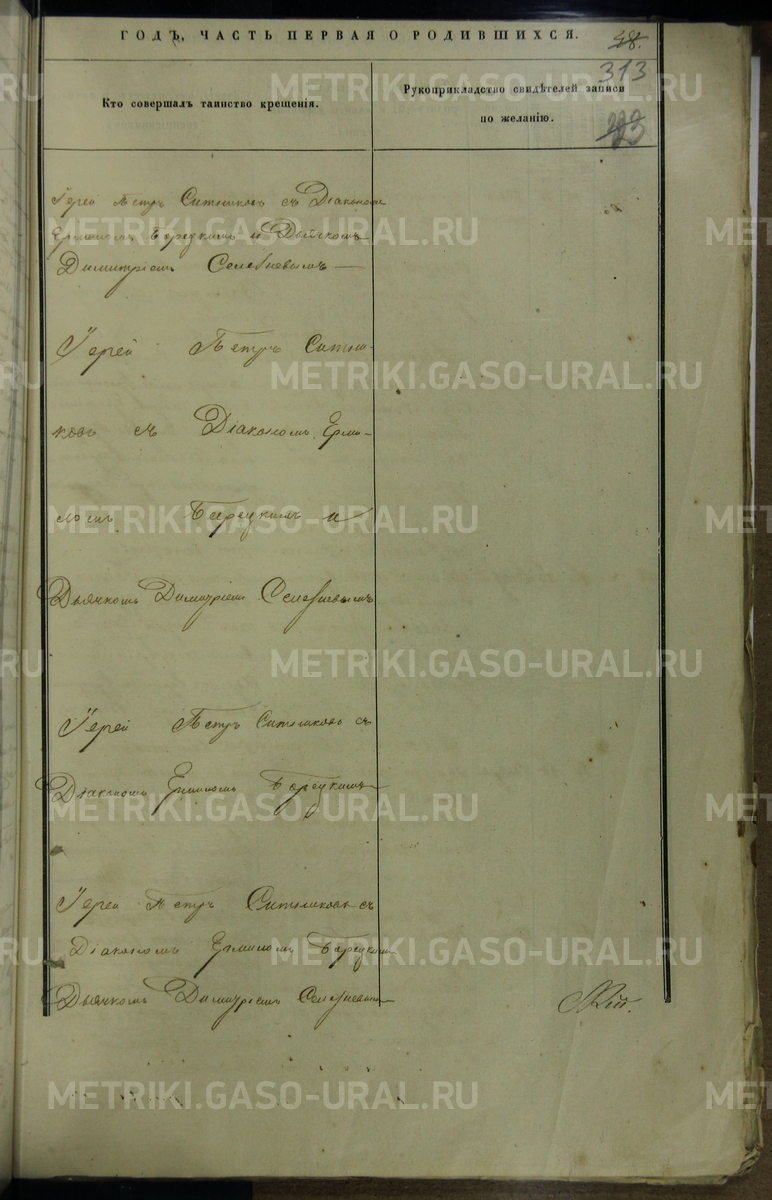 ГОДЪ, ЧАСТЬ ПЕРВАЯ О РОДИВШИХСЯ.
48.
313
Кто совершалъ таинство крещенія.
Рукоприкладство свидѣтелей записи
по желанію.
Іерей Петръ Ситниковъ съ Діакономъ
Ермиломъ Борецкимъ и Дьячкомъ
Димитріемъ Селезневымъ
Іерей Петръ Ситни-
ковъ съ Діакономъ Ерми-
ломъ Борецкимъ и
Дьячкомъ Димитріемъ Селезневымъ
Іерей Петръ Ситниковъ съ
Діакономъ Ермиломъ Борецкимъ
Іерей Петръ Ситниковъ съ
Діакономъ Ермиломъ Борецкимъ
Дьячкомъ Димитріемъ Селезневымъ
METRIKI.GASO-URAL.RU